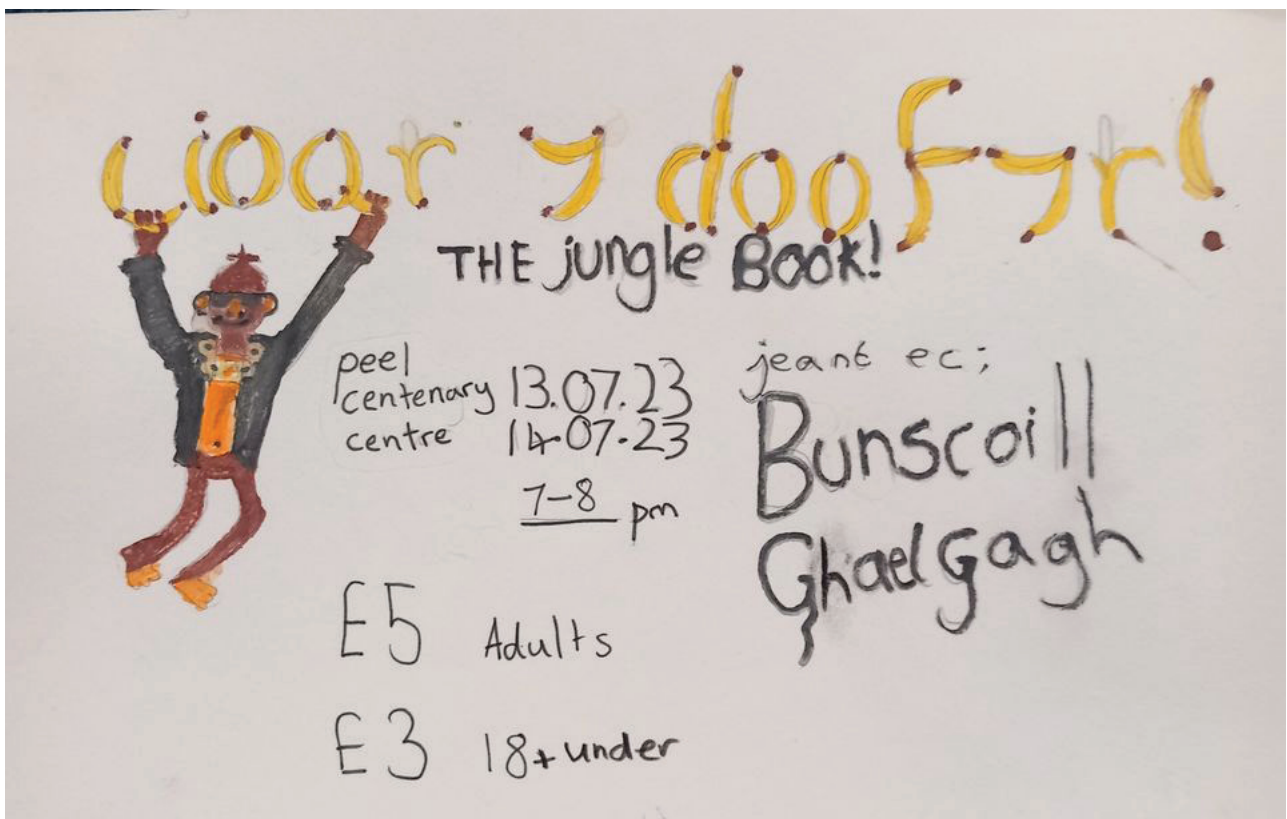 Lioar y doofyr!
THE jungle BOOK!
peel
centenary
centre
13.07.23
14.07.23
7-8 pm
jeant ec;
Bunscoill
Ghaelgagh
£5 Adults
£3 18+under